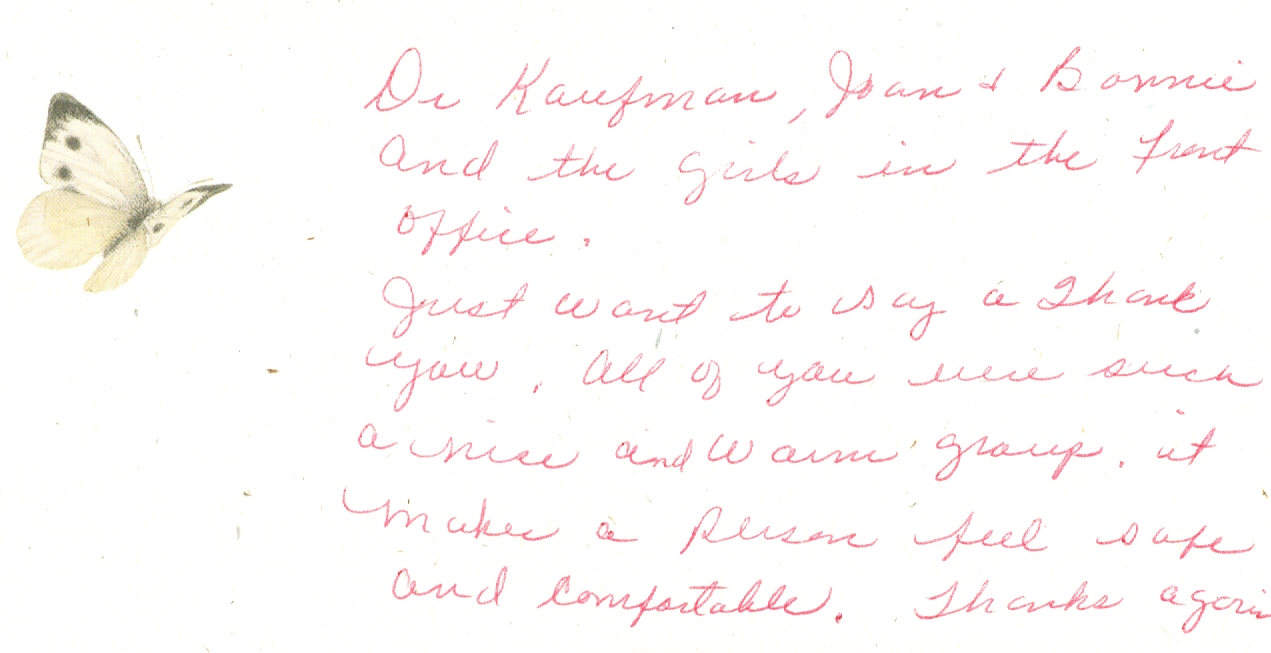 Dr Kaufman, Joan & Bonnie
and the girls in the front
office.
Just want to say a Thank
you. All of you were such
a nice and warm group. it
makes a person feel safe
and comfortable. Thanks again